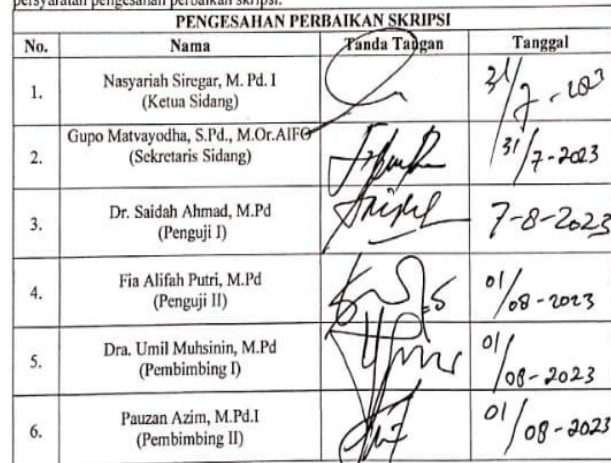 persyaratan pengesahan perbaikan skripsi.
PENGESAHAN PERBAIKAN SKRIPSI
No. Nama Tanda Tangan Tanggal
1. Nasyariah Siregar, M. Pd. I
(Ketua Sidang)
31/7-2023
2. Gupo Matvayodha, S.Pd., M.Or.AIFO
(Sekretaris Sidang)
31/7-2023
3. Dr. Saidah Ahmad, M.Pd
(Penguji I)
7-8-2023
4. Fia Alifah Putri, M.Pd
(Penguji II)
01/08-2023
5. Dra. Umil Muhsinin, M.Pd
(Pembimbing I)
01/08-2023
6. Pauzan Azim, M.Pd.I
(Pembimbing II)
01/08-2023